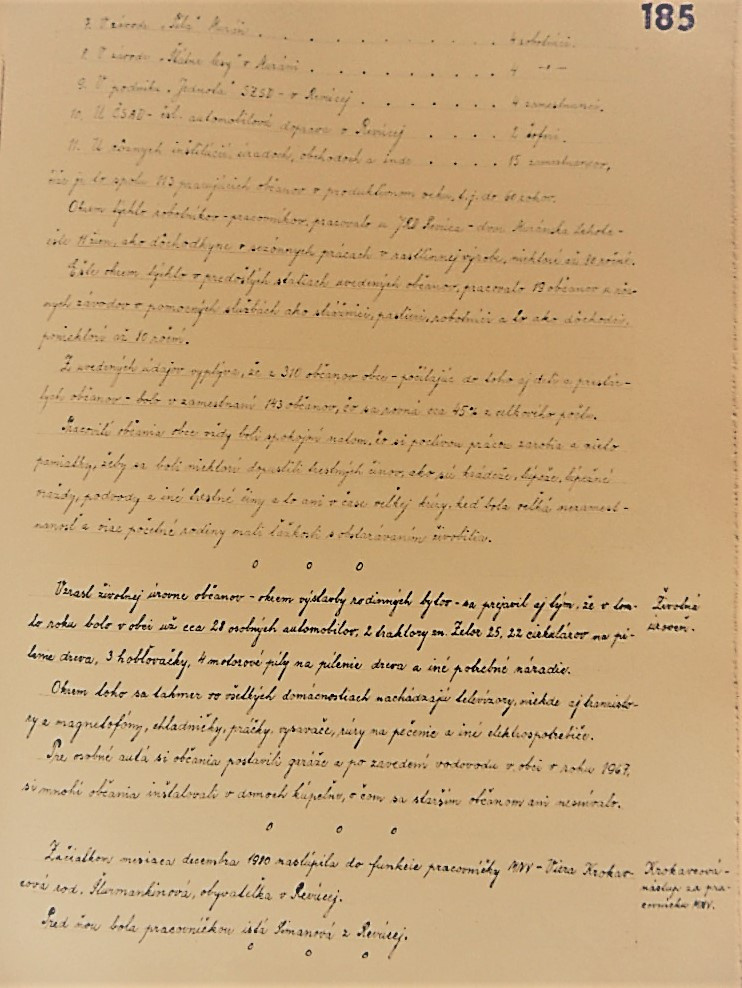 185
7. V závode "Píla" Muráň . . . . . . . 4 robotníci.
8. V závode "Štátne lesy" v Muráni . . . . . . 4 -"-
9. V podniku "Jednota" SZSD - v Revúcej . . . . . 4 zamestnanci.
10. U ČSAD - čsl. automobilová doprava v Revúcej . . . . 2 šoféri.
11. U rôznych inštitúcií, úradoch, obchodoch a inde . . . . 15 zamestnancov,
čo je to spolu 113 pracujúcich občanov v produktívnom veku, t.j. do 60 rokov.
Okrem týchto robotníkov - pracovníkov, pracovalo u JRD Revúca - dvor Muránska Lehota -
ešte 11 žien, ako dôchodkyne v sezónnych prácach v rastlinnej výrobe, niektoré až 80 ročné.
Ešte okrem týchto v predošlých statiach uvedených občanov, pracovalo 19 občanov u rôz-
nych závodov v pomocných službách ako strážnici, pastieri, robotníci a to ako dôchodci,
poniektorí až 80 roční.
Z uvedených údajov vyplýva, že z 310 občanov obce - počítajúc do toho aj deti a prestár-
lych občanov - bolo v zamestnaní 143 občanov, čo sa rovná cca 45% z celkového počtu.
Pracovití občania obce vždy boli spokojní na tom, čo si poctivou prácou zarobia a nieto
pamiatky, žeby sa boli niektorí dopustili trestných činov, ako sú krádeže, lúpeže, lúpežné
vraždy, podvody a iné trestné činy a to ani v čase veľkej krízy, keď bola veľká nezamest-
nanosť a viac početné rodiny mali ťažkosti s obstarávaním živobytia.
o o o
Vzrast životnej úrovne občanov - okrem výstavby rodinných bytov - sa prejavil aj tým, že v tom-
to roku bolo v obci už cca 28 osobných automobilov, 2 traktory zn. Zetor 25, 22 cirkulárov na pí-
lenie dreva, 3 hobľovačky, 4 motorové píly na pílenie dreva a iné potrebné náradie.
Životná
úroveň.
Okrem toho sa takmer vo všetkých domácnostiach nachádzajú televízory, niekde aj tranzisto-
ry a magnetofóny, chladničky, práčky, vysavače, rúry na pečenie a iné elektrospotrebiče.
Pre osobné autá si občania postavili garáže a po zavedení vodovodu v obci v roku 1967,
si mnohí občania inštalovali v domoch kúpeľne, o čom sa starším občanom ani nesnívalo.
o o o
Začiatkom mesiaca decembra 1980 nastúpila do funkcie pracovníčky MNV - Viera Krokav-
cová rod. Šturmankinová, obyvateľka v Revúcej.
Krokavcová -
nástup za pra-
covníčku MNV.
Pred ňou bola pracovníčkou istá Šimanová z Revúcej.
o o o